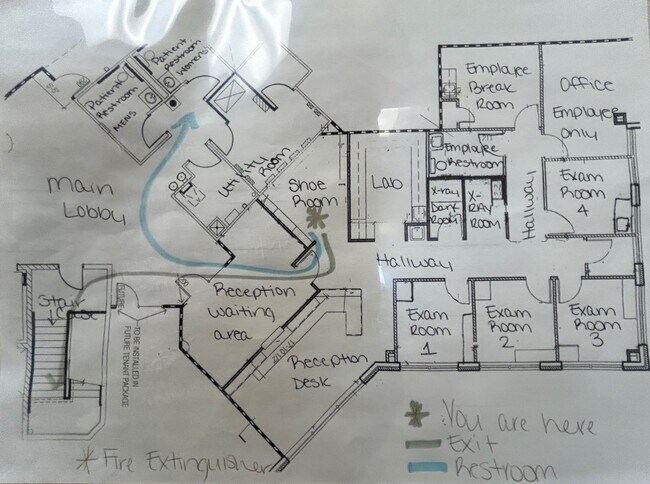 Patient
Restroom
Womens
Patient
Restroom
MENS
Employee
Break
Room
Office
Employee
only
Employee
Restroom
Utility
Room
Shoe
Room
Lab
X-ray
Dark
Room
X-
RAY
ROOM
Hallway
Exam
Room
4
main
Lobby
Hallway
Reception
waiting
area
Exam
Room
1
Exam
Room
2
Exam
Room
3
FUTURE
TO BE INSTALLED IN
FUTURE TENANT PACKAGE
Reception
Desk
: You are here
Exit
Restroom
* Fire Extinguisher